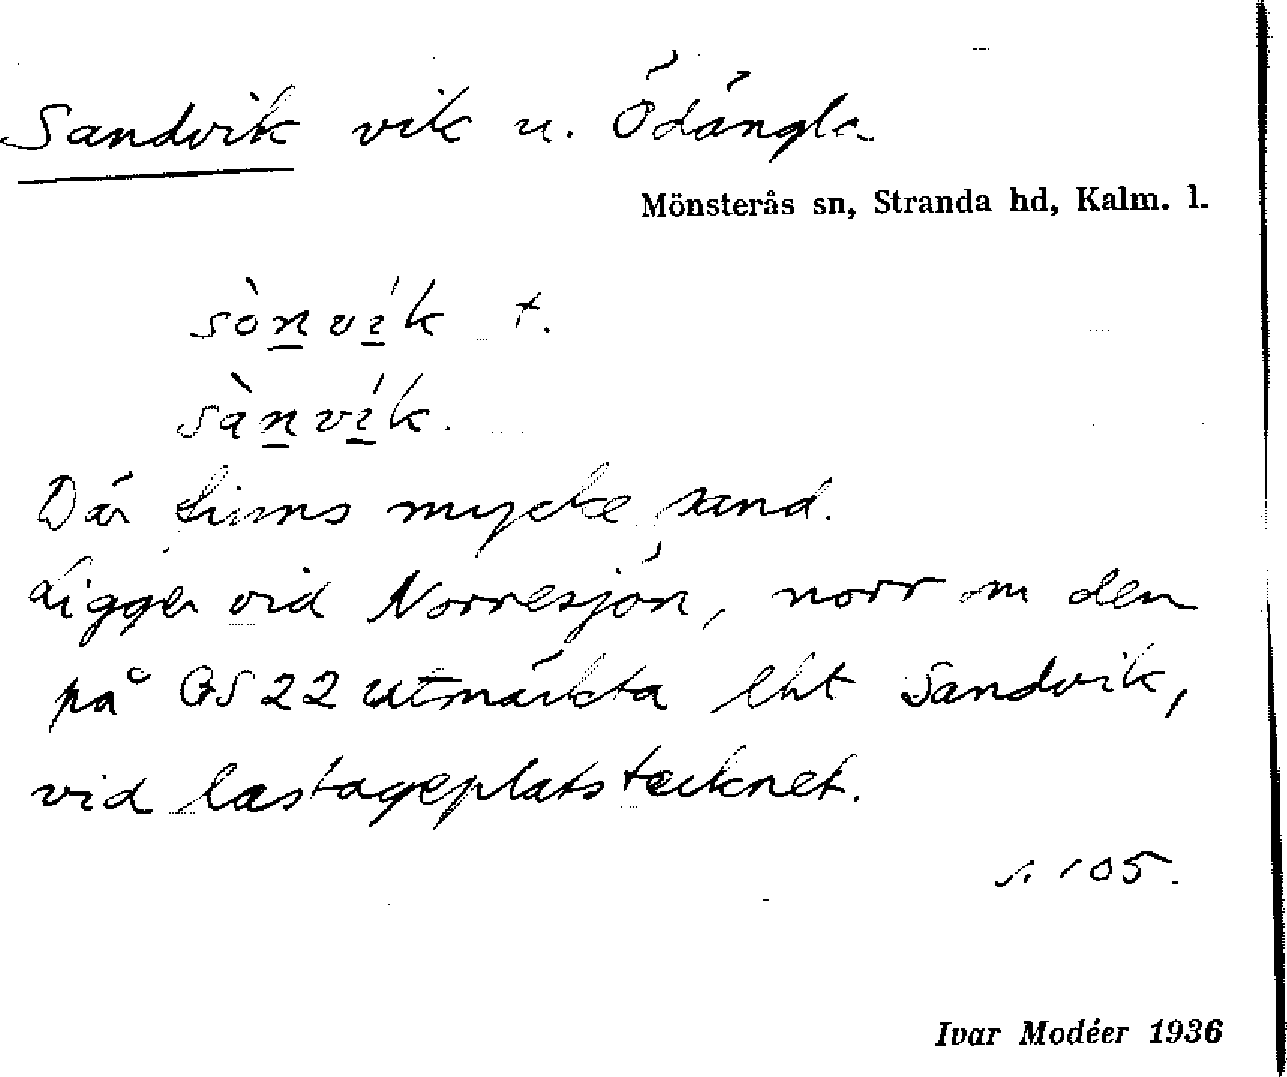 Sandvik vik u. Ödängla
Mönsterås sn, Stranda hd, Kalm. l.
sònvík †.
sànvík.
Där finns mycke sand.
Ligger vid Norresjön, norr om den
på GS 22 utmärkta lht Sandvik,
vid lastageplatstecknet.
s. 105.
Ivar Modéer 1936